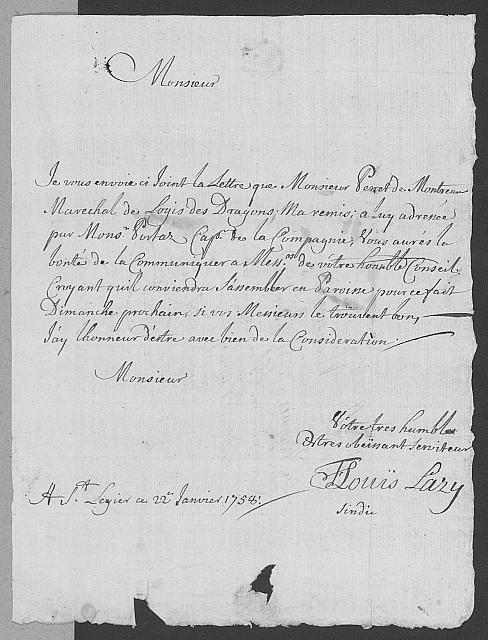 Monsieur
Je vous envoie ci Joint la Lettre que Monsieur Perret de Montreux
Marechal de Logis des Dragons; Ma remis; a luy adressée
par Mons.r Portaz Cap.e de la Compagnie; Vous aurés la
bonté de la Communiquer a Mess.rs de vôtre honnble Conseil,
Croyant quil conviendra S'assembler en Paroisse pour ce fait
Dimanche prochain, si vos Messieurs le trouvent bon,
J'ay lhonneur d'estre avec bien de la Consideration.
Monsieur
Vôtre tres humble
& tres obeïssant serviteur
Louïs Lazy
Sindic
A S.t Legier ce 22e Janvier 1758: